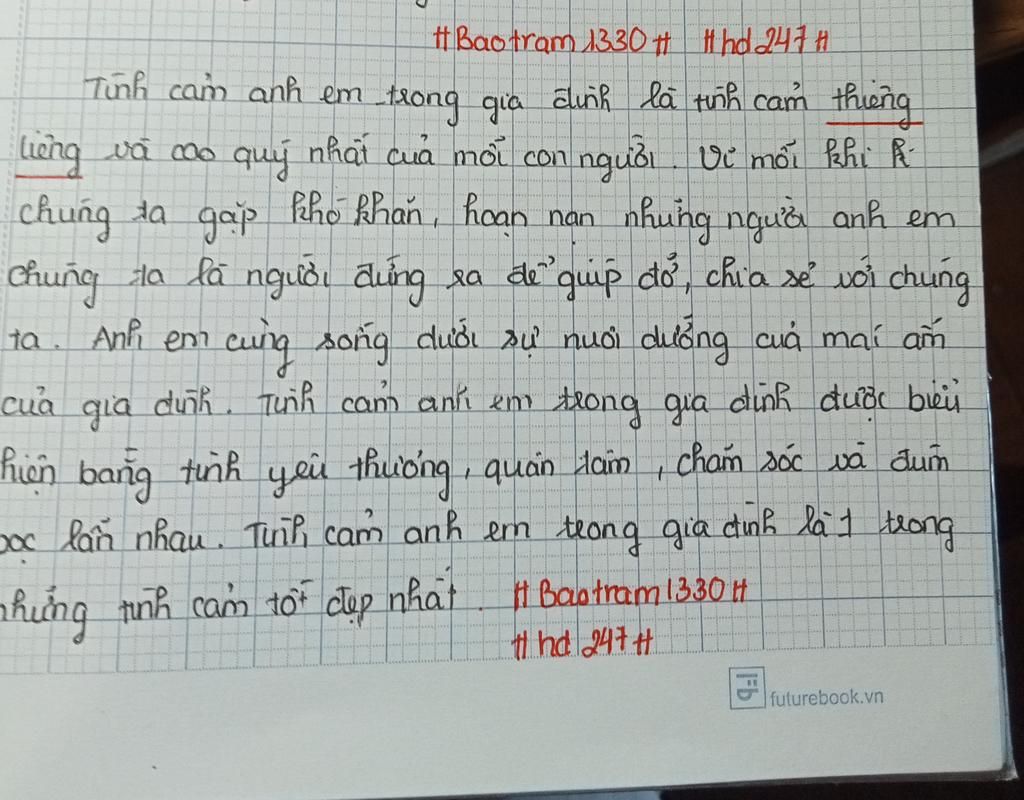 #Baotram1330# #hd247#
Tình cảm anh em trong gia đình là tình cảm thiêng
liêng và cao quý nhất của mỗi con người. Vì mỗi khi
chúng ta gặp khó khăn, hoạn nạn những người anh em
chúng ta là người đứng ra để giúp đỡ, chia sẻ với chúng
ta. Anh em cùng sống dưới sự nuôi dưỡng của mái ấm
của gia đình. Tình cảm anh em trong gia đình được biểu
hiện bằng tình yêu thương, quan tâm, chăm sóc và đùm
bọc lẫn nhau. Tình cảm anh em trong gia đình là 1 trong
những tình cảm tốt đẹp nhất. #Baotram1330#
#hd247#
futurebook.vn